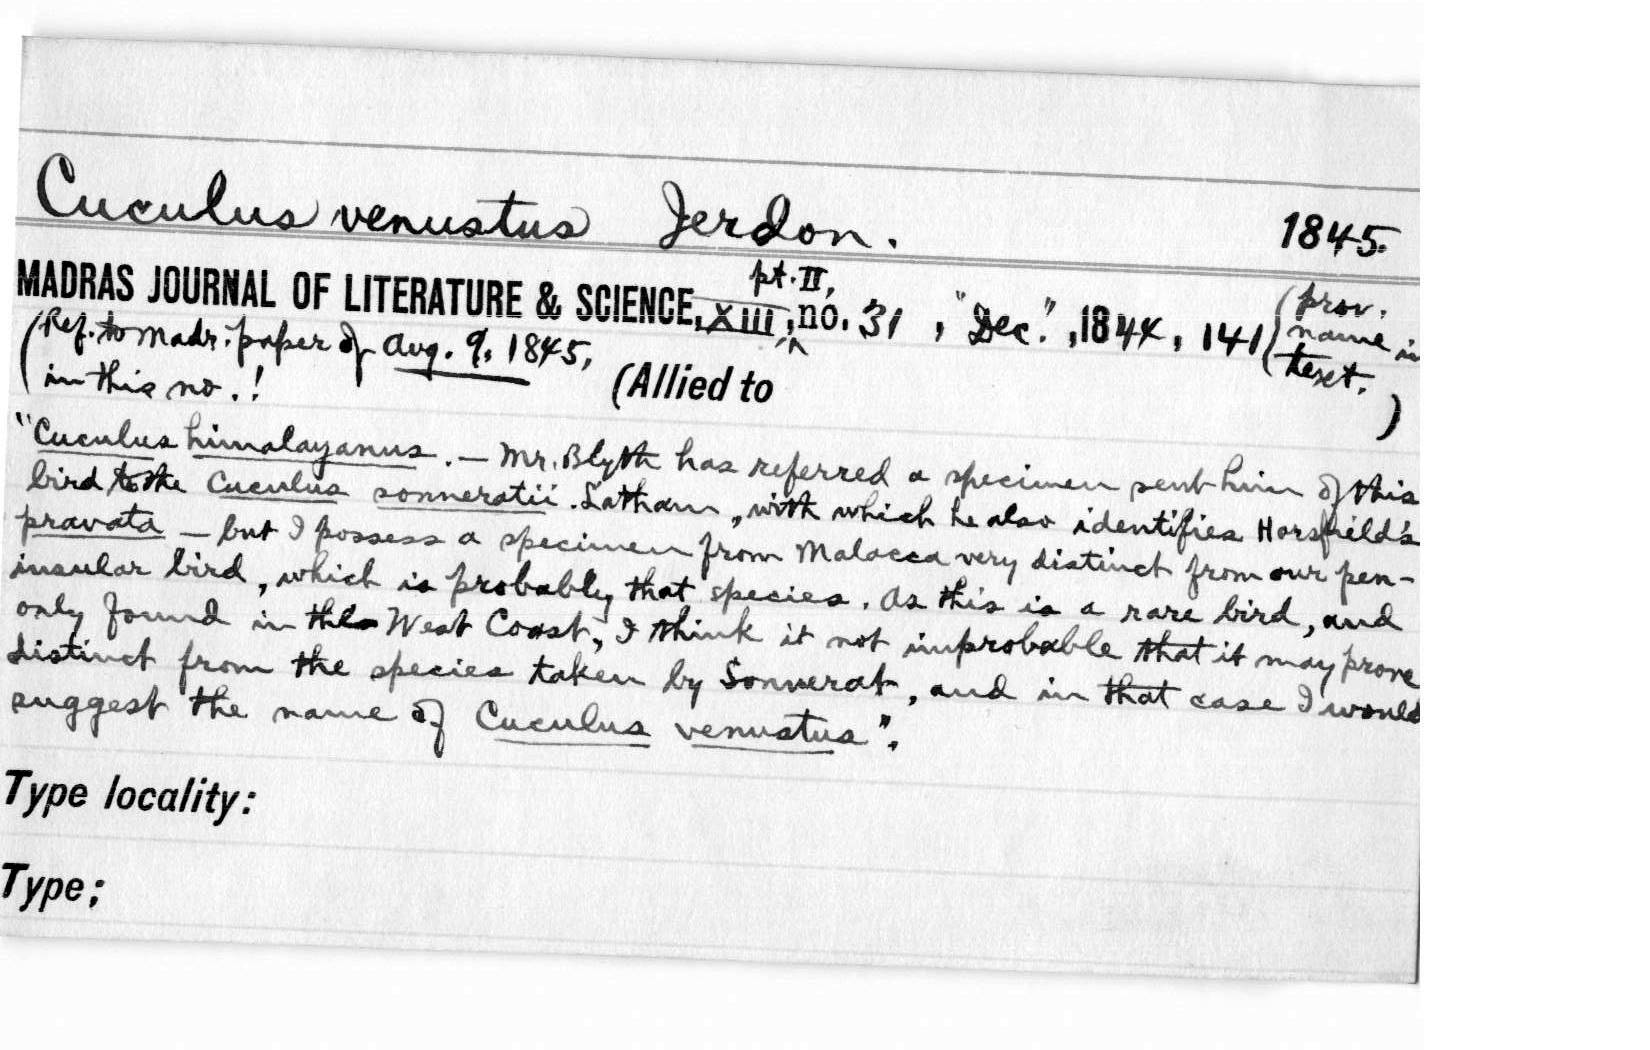 Cuculus venustus Jerdon. 1845.
MADRAS JOURNAL OF LITERATURE & SCIENCE, XIII, pt. II, no. 31, "Dec.", 1844, 141 (prov. name in text.)
(Ref. to Madr. paper of Aug. 9, 1845,
in this no.! (Allied to )
"Cuculus himalayanus. — Mr. Blyth has referred a specimen sent him of this
bird to the Cuculus sonneratii. Latham, with which he also identifies Horsfield's
pravata — but I possess a specimen from Malacca very distinct from our pen-
insular bird, which is probably that species. As this is a rare bird, and
only found in the West Coast, I think it not improbable that it may prove
distinct from the species taken by Sonnerat, and in that case I would
suggest the name of Cuculus venustus".
Type locality:
Type;